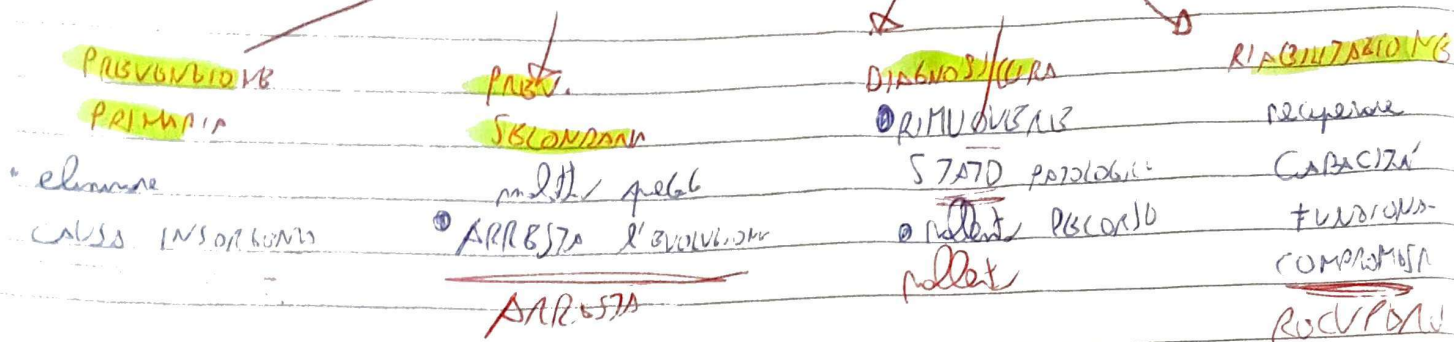 PREVENZIONE
PRIMARIA
eliminare
CAUSA INSORGENZA
PREV.
SECONDARIA
ARRESTA l'EVOLUZIONE
ARRESTA
DIAGNOSI/CURA
RIMUOVERE
STATO PATOLOGICO
rallenta DECORSO
rallenta
RIABILITAZIONE
recuperare
CAPACITÀ
FUNZIONA-
COMPROMESSA